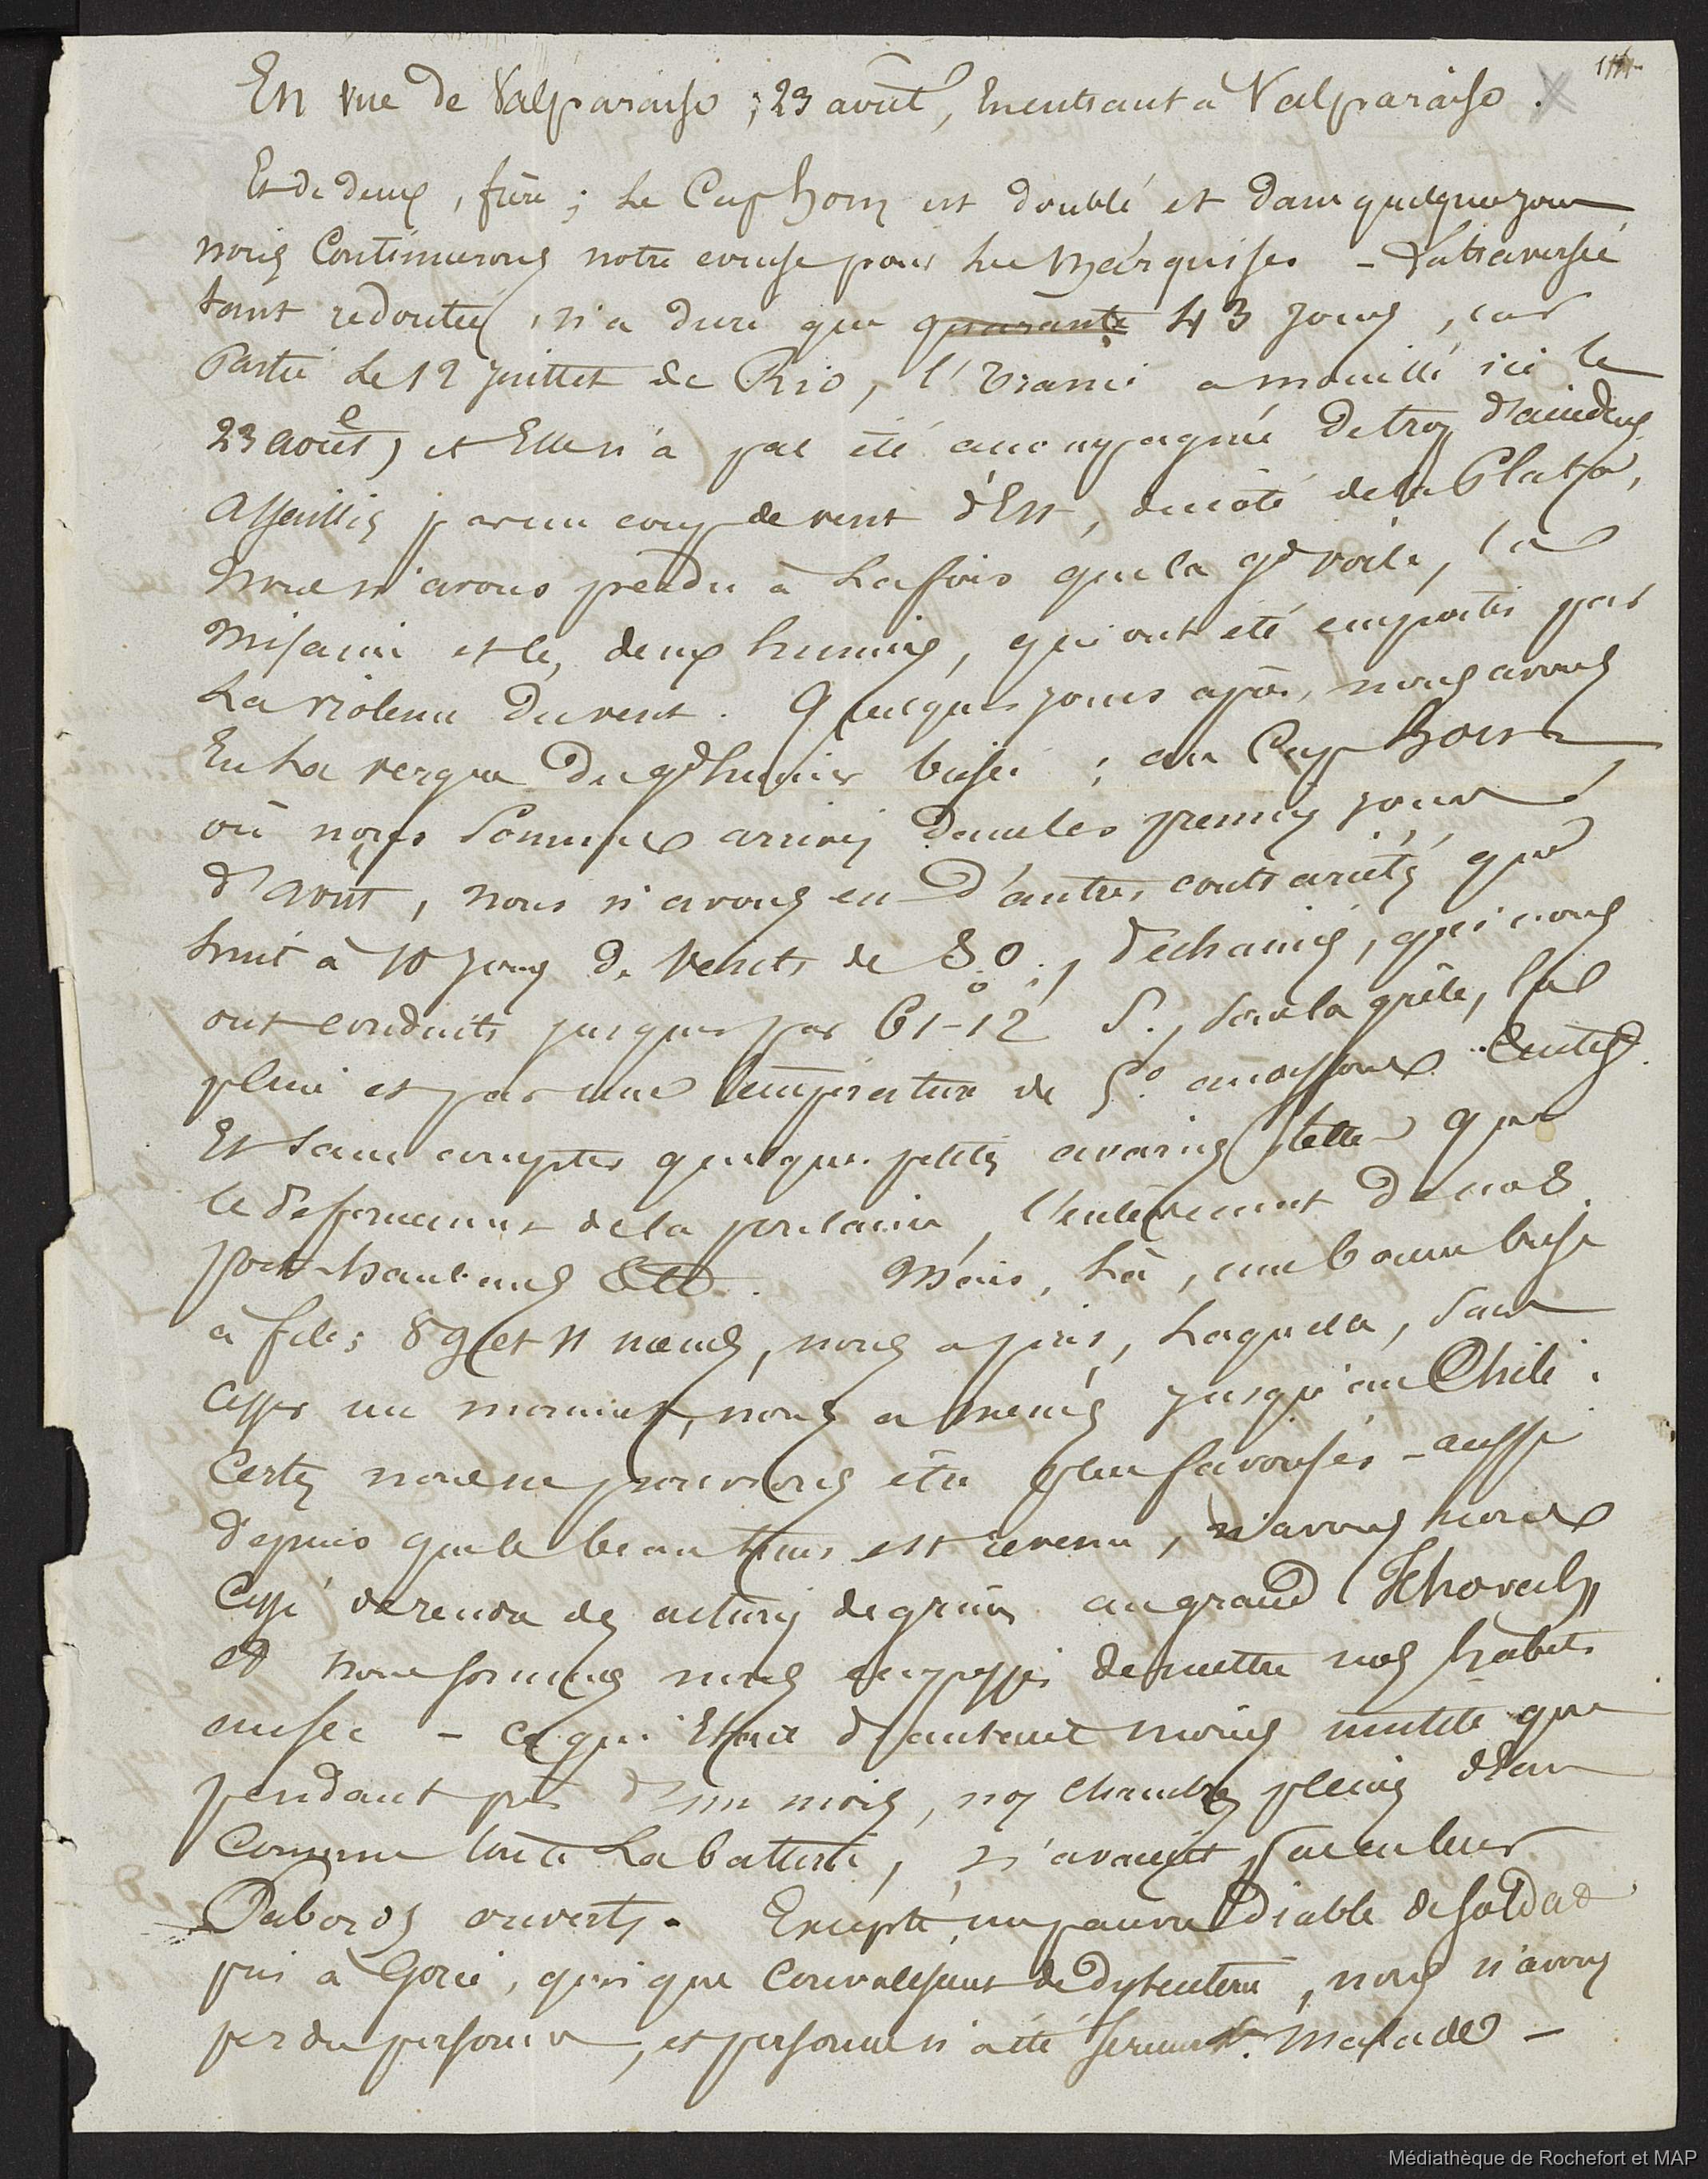 1111
En vue de Valparaiso ; 23 août, en entrant à Valparaiso .
Et de deux, frère ; Le Cap horn est doublé et dans quelques jours
nous continuerons notre course pour les Marquises - La traversée
tant redoutée, n'a duré que quarante 43 jours, car
Partie le 12 juillet de Rio, l' a mouillé ici le
23 août, et Elle n'a pas été accompagnée de trop d'accidens.
Assaillis par un coup de vent d'Est, du côté de la Plata,
nous n'avons perdu à la fois que la gde voile, la
Misaine et les deux huniers, qui ont été emportés par
La violence du vent. Quelques jours après, nous avons
Eu La vergue du gd hunier brisée ; au Cap horn
où nous sommes arrivés dans les premiers jours
d'août, nous n'avons eu d'autres contrariétés que
huit à 10 jours de vents de S.O., déchainés, qui nous
ont conduits jusques par 61°-12' S., sous la grêle, la
pluie et par une température de 5° au dessous
Et sans compter quelques petites avaries telles que
le de la poulaine, l'enlèvement de nos
porte-haubans Etc. Mais, Là, une bonne brise
à filer 8 9 et 11 nœuds, nous a pris, Laquelle, sans
cesser un moment, nous a menés jusqu'au Chili.
Certes nous ne pouvions être plus favorisés - aussi
depuis que le beau tems est revenu, n'avons nous
Cessé de rendre des actions de grâces au grand Jehovah,
et nous sommes nous empressés de mettre nos habits
au sec - ce qui Etait d'autant moins inutile que
pendant près d'un mois, nos chambres pleines d'eau
Comme toute La batterie, n'avaient pas eu leurs
Sabords ouverts. Excepté un pauvre Diable de soldat
pris à Gorée, quoique convalescent de dyssenterie, nous n'avons
perdu personne, et personne n'a été malade -
Médiathèque de Rochefort et MAP